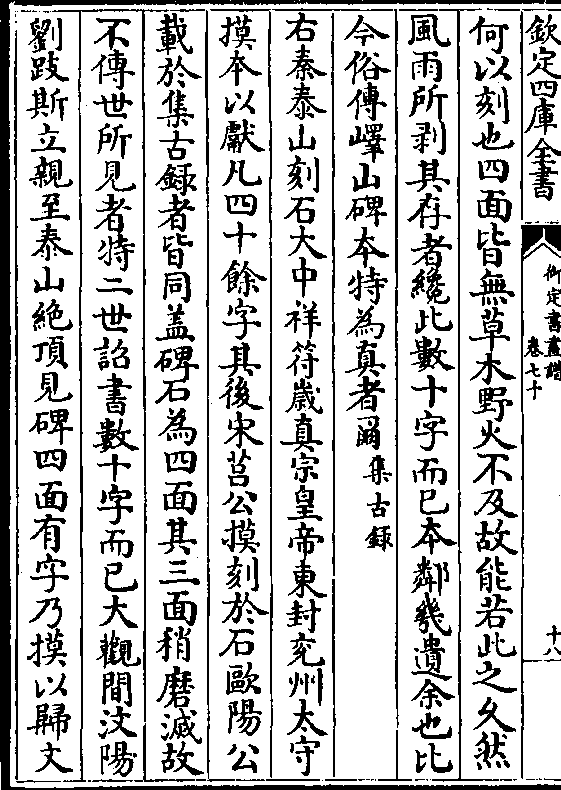 欽定四庫全書
御定書畫譜
卷七十
十八
何以刻也四面皆無草木野火不及故能若此之久然
風雨所剥其存者纔此數十字而已本鄰幾遺余也比
今俗傳嶧山碑本特為真者爾集古録
右秦泰山刻石大中祥符歲真宗皇帝東封兖州太守
摸本以獻凡四十餘字其後宋莒公摸刻於石歐陽公
載於集古録者皆同盖碑石為四面其三面稍磨滅故
不傳世所見者特二世詔書數十字而已大觀間汶陽
劉跂斯立親至泰山絶頂見碑四面有字乃摸以歸文